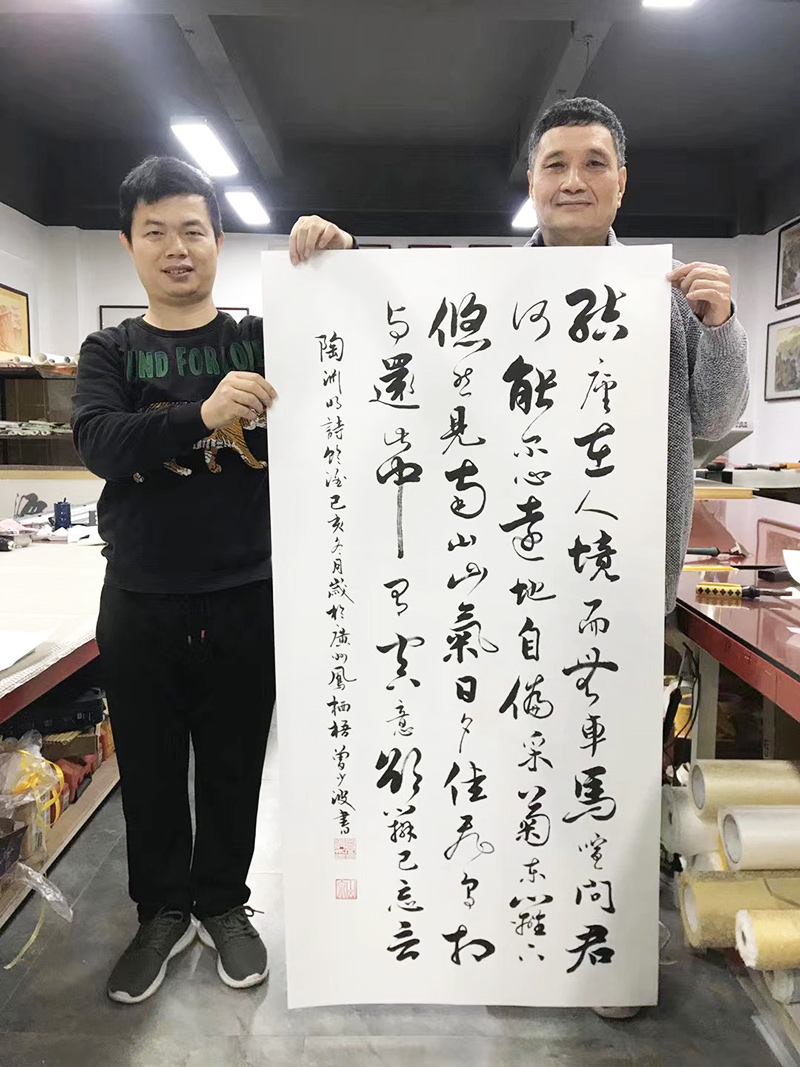 結廬在人境而無車馬喧問君
何能尔心遠地自偏采菊東籬下
悠然見南山山氣日夕佳飛鳥相
与還此中有真意欲辨已忘言
陶淵明詩飲酒己亥冬月歲於廣州鳳栖梧曾少波書
IND FOR LO